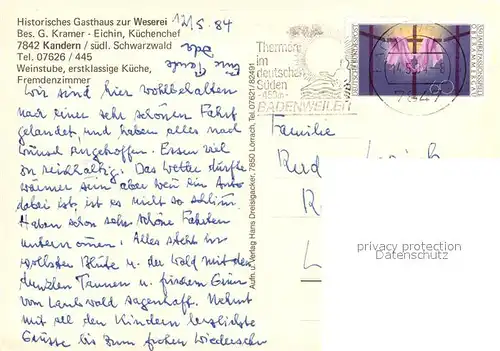 Historisches Gasthaus zur Weserei
Bes. G. Kramer - Eichin, Küchenchef
7842 Kandern / südl. Schwarzwald
Tel. 07626 / 445
Weinstube, erstklassige Küche,
Fremdenzimmer
12/5. 84
Wir sind hier wohlbehalten
nach einer sehr schönen Fahrt
gelandet, und haben alles nach
Wunsch angetroffen. Essen viel
zu reichhaltig. Das Wetter dürfte
wärmer sein aber wenn ein Auto
dabei ist, ist es nicht so schlimm.
Haben schon sehr schöne Fahrten
unternommen. Alles steht in
vollster Blüte u. der Wald mit den
dunklen Tannen u. frischem Grün
vom Laubwald sagenhaft. Nehmt
mit all den Kindern herzlichste
Grüsse bis zum frohen Wiedersehn
Aufn. u. Verlag Hans Dreisigacker, 7850 Lörrach, Tel. 07621/82491
Thermen
im
deutschen
Süden
BADENWEILER
DEUTSCHE BUNDESPOST
OBERAMMERGAU
Familie
privacy protection
Datenschutz